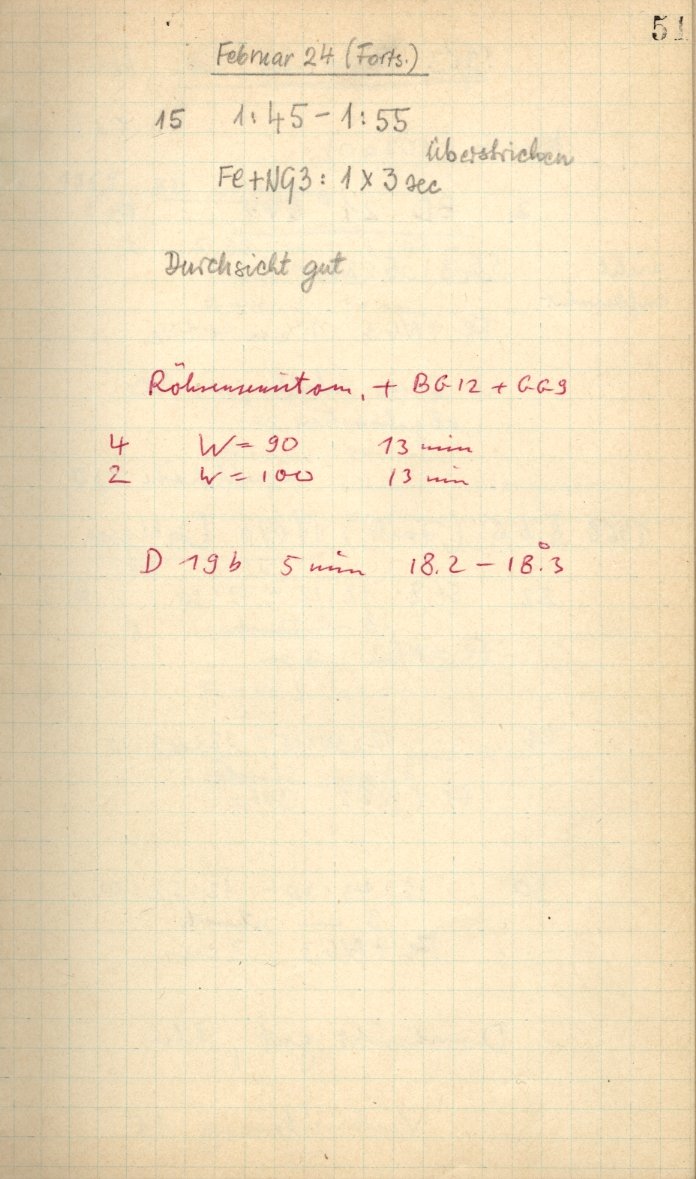 51
Februar 24 (Forts.)
15 1:45 - 1:55
überstrichen
Fe+NG3: 1 x 3 sec
Durchsicht gut
Röhrensensitom. + BG12 + GG9
4 W = 90 13 min
2 W = 100 13 min
D 19b 5 min 18.2 - 18.°3